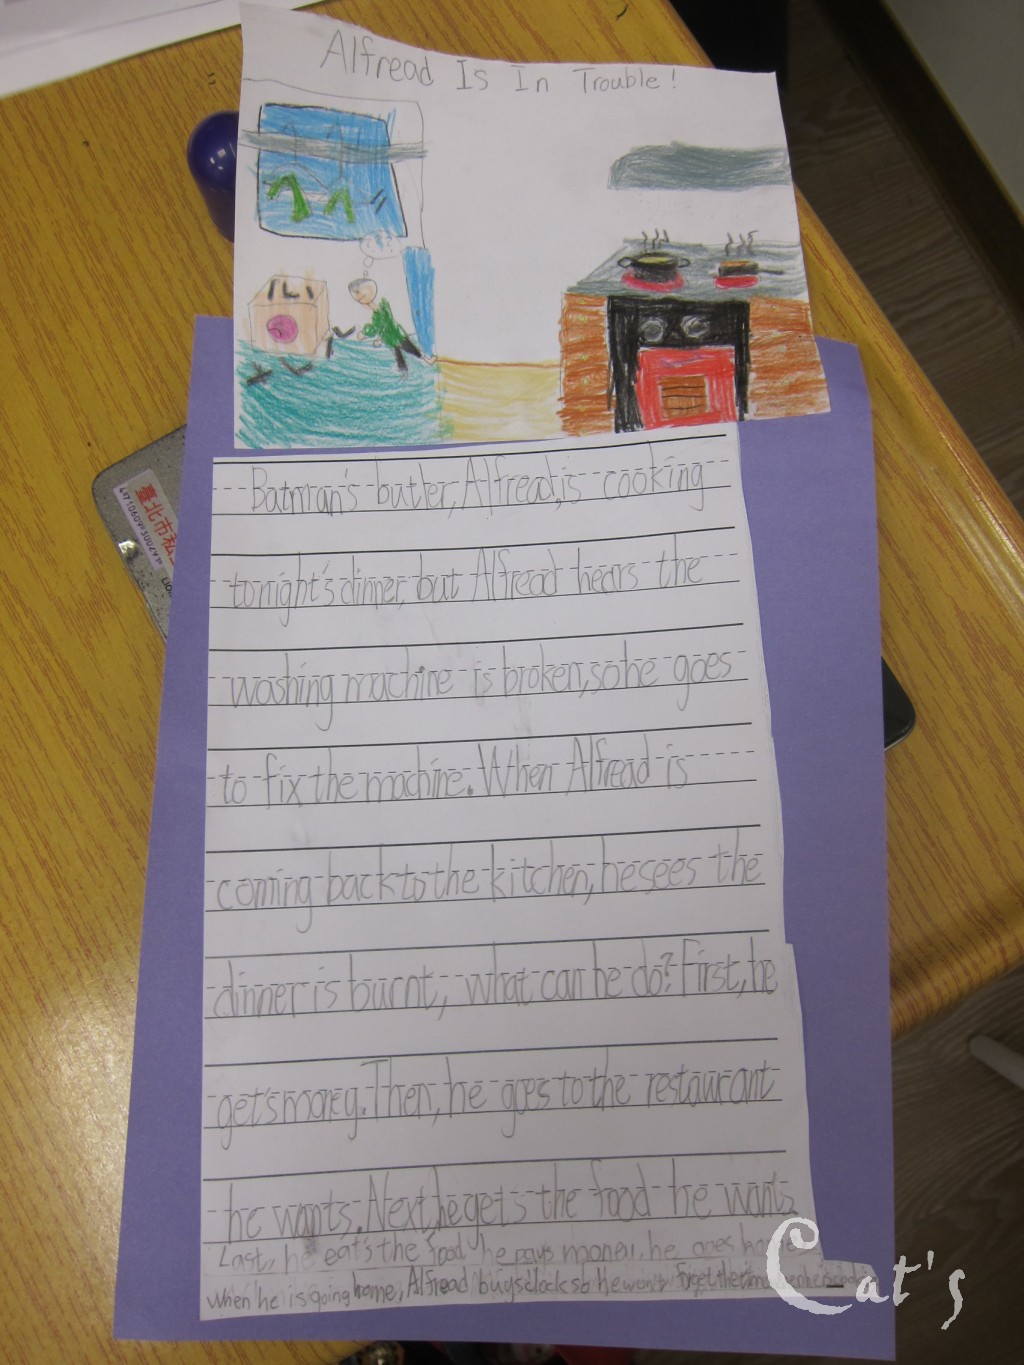 Alfread Is In Trouble!
臺北市私
4710609300249
Batman's butler, Alfread, is cooking
tonight's dinner, but Alfread hears the
washing machine is broken, so he goes
to fix the machine. When Alfread is
coming back to the kitchen, he sees the
dinner is burnt, what can he do? First, he
get's money. Then, he goes to the restaurant
he wants. Next, he gets the food he wants.
Last, he eat's the food, he pays money, he goes home
When he is going home, Alfread buys clock so he won't forget the time when he is
Cat's